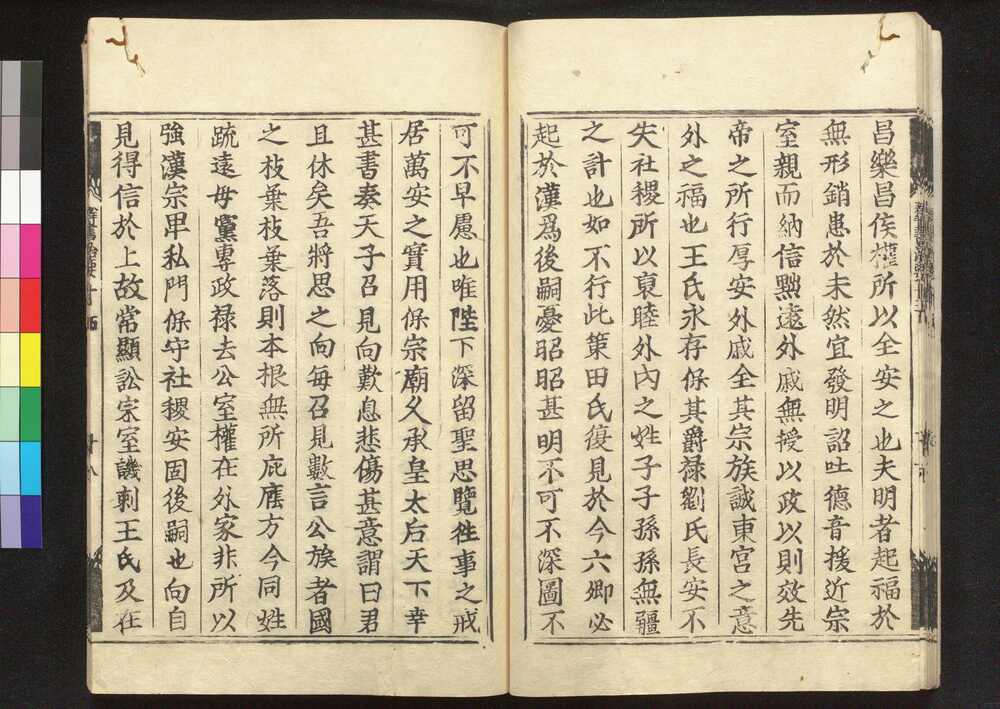 昌樂昌侯權所以全安之也夫明者起福於
無形銷患於未然宜發明詔吐德音援近宗
室親而納信黜遠外戚無授以政以則效先
帝之所行厚安外戚全其宗族誠東宮之意
外之福也王氏永存保其爵祿劉氏長安不
失社稷所以裒睦外內之姓子子孫孫無疆
之計也如不行此策田氏復見於今六卿必
起於漢爲後嗣憂昭昭甚明不可不深圖不
可不早慮也唯陛下深留聖思覽徃事之戒
居萬安之實用保宗廟久承皇太后天下幸
甚書奏天子召見向歎息悲傷甚意謂曰君
且休矣吾將思之向每召見數言公族者國
之枝葉枝葉落則本根無所庇廕方今同姓
疏遠母黨專政祿去公室權在外家非所以
強漢宗卑私門保守社稷安固後嗣也向自
見得信於上故常顯訟宗室譏刺王氏及在